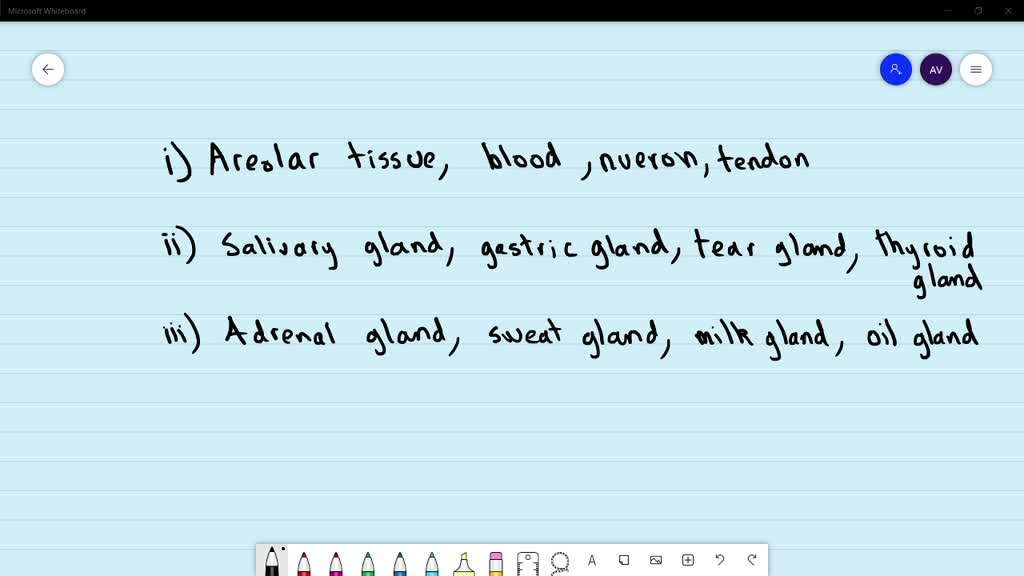 Microsoft Whiteboard
AV
i) Areolar tissue, blood, nueron, tendon
ii) Salivary gland, gastric gland, tear gland, thyroid
gland
iii) Adrenal gland, sweat gland, milk gland, oil gland
A